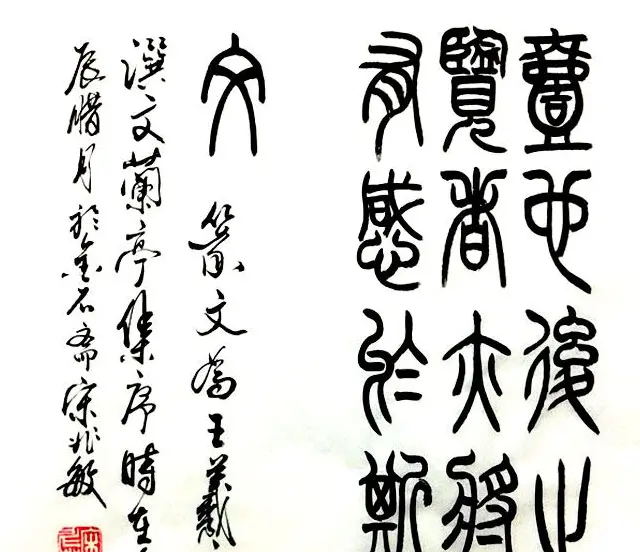 壹也後之
覽者亦將
有感於斯
文 篆文為王羲
撰文蘭亭集序時在
辰腊月於金石齋宋兆敏